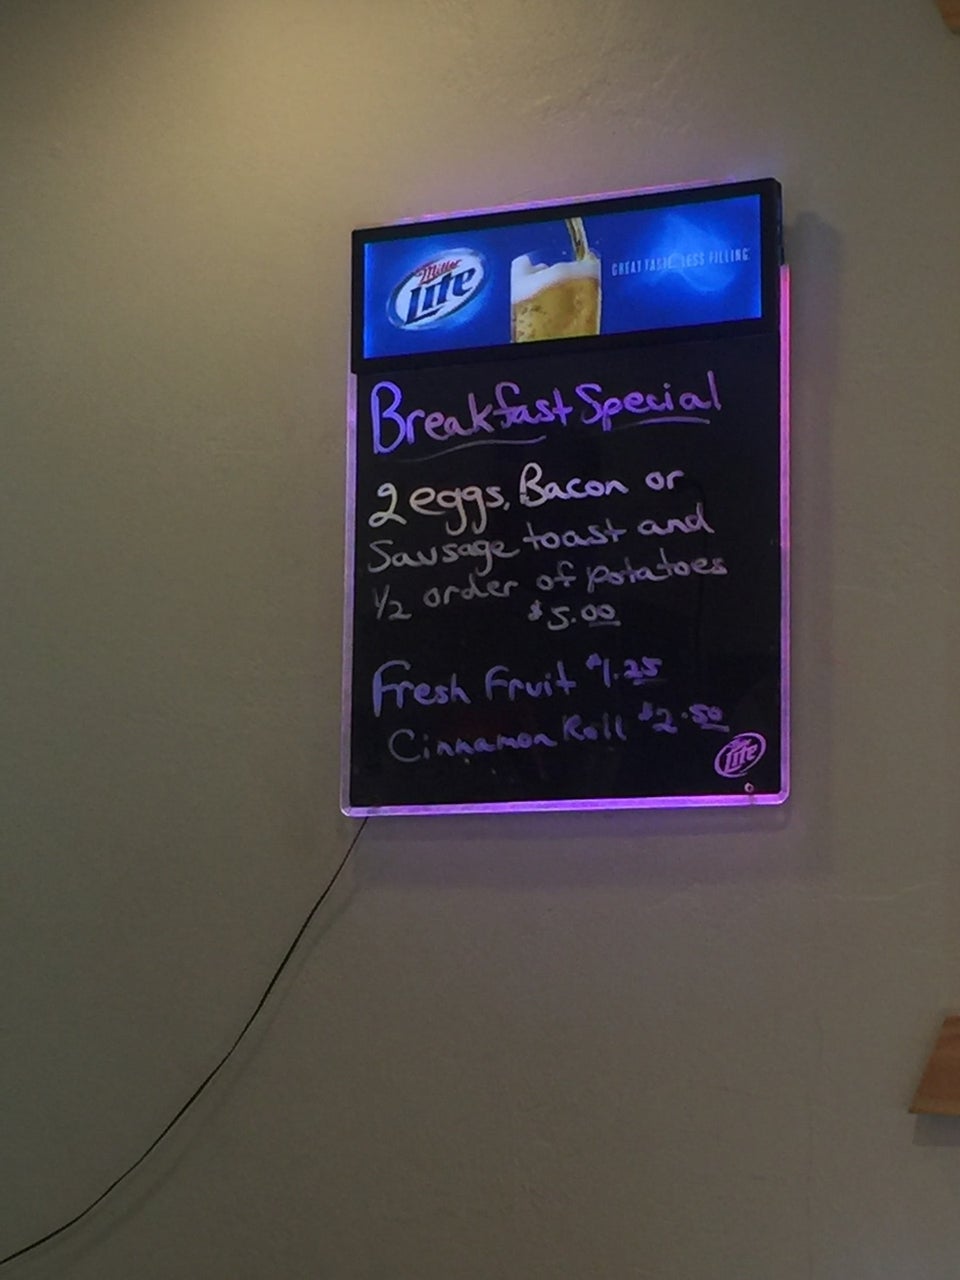 Miller
Lite
GREAT TASTE. LESS FILLING
Breakfast Special
2 eggs, Bacon or
Sausage toast and
1/2 order of potatoes
$5.00
Fresh Fruit $1.25
Cinnamon Roll $2.50
Lite